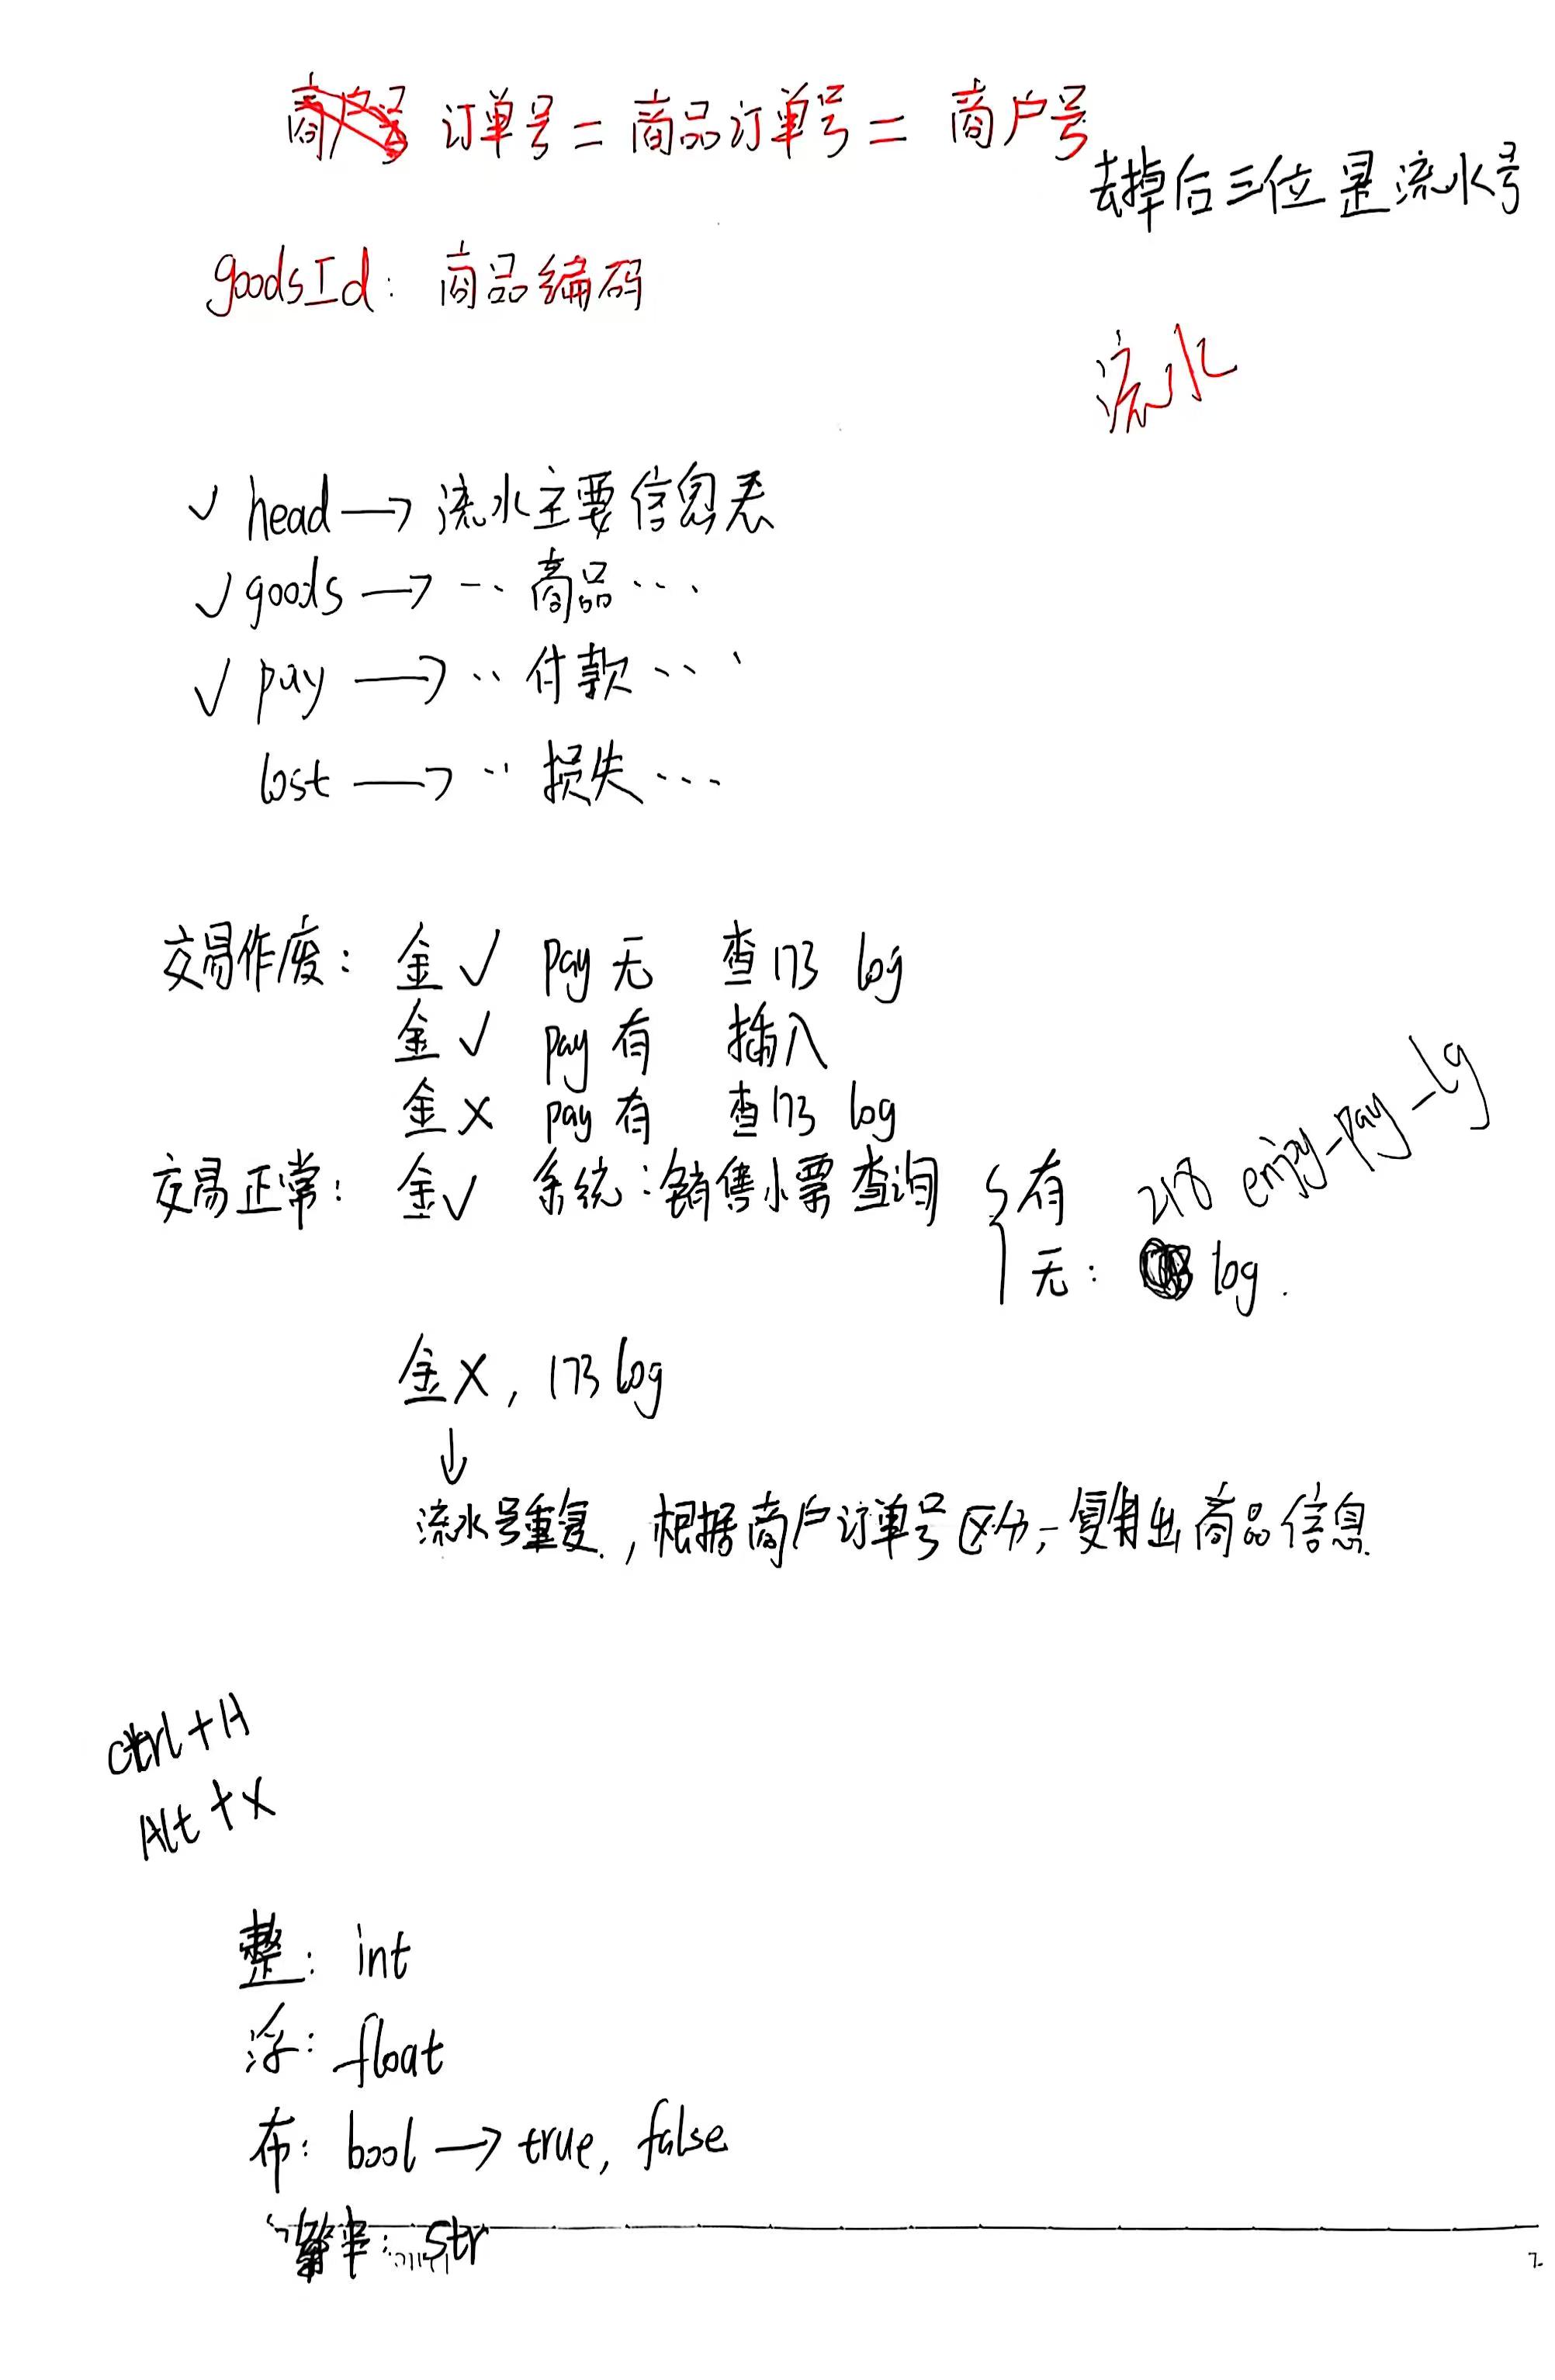 订单号 = 商品订单号 = 商户号
去掉后三位是流水号
goodsId: 商品编码
流水
✓ head → 流水主要信息表
✓ goods → ·· 商品 ···
✓ pay → ·· 付款 ···
lost → ·· 损失 ···
交易作废: 金✓ pay无 查173 log
金✓ pay有 插入
金× pay有 查173 log
交易正常: 金✓ 系统:销售小票查询 { 有 218 enjoy-pay-lg
无: log.
金×, 173 log
↓
流水号重复, 根据商户订单号区分, 复制出商品信息
ctrl+H
Alt+X
整: int
浮: float
布: bool → true, false
: str